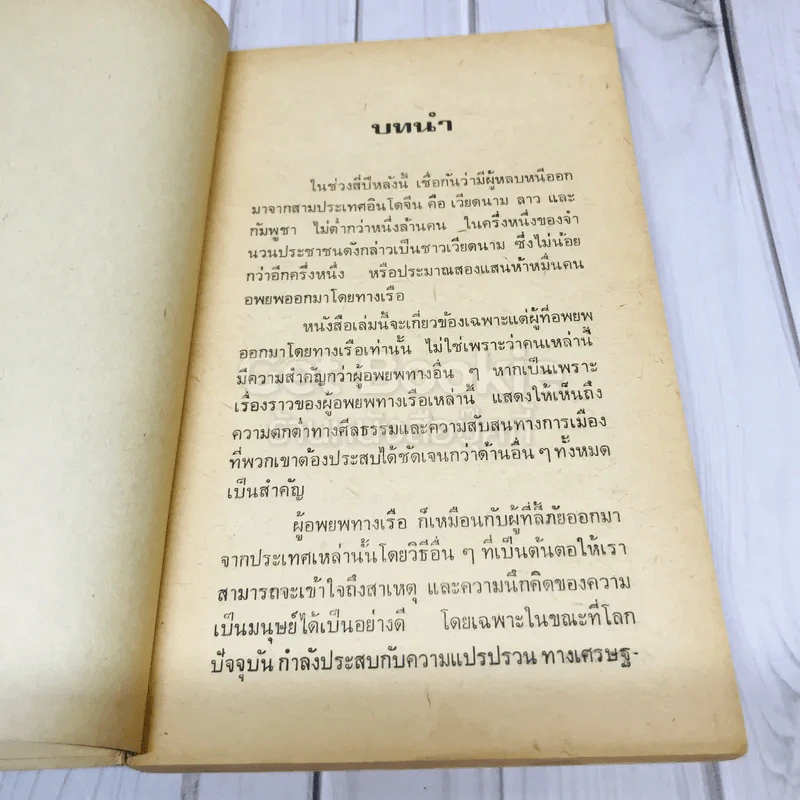 บทนำ
ในช่วงสี่ปีหลังนี้ เชื่อกันว่ามีผู้หลบหนีออก
มาจากสามประเทศอินโดจีน คือ เวียดนาม ลาว และ
กัมพูชา ไม่ต่ำกว่าหนึ่งล้านคน ในครึ่งหนึ่งของจำ
นวนประชาชนดังกล่าวเป็นชาวเวียดนาม ซึ่งไม่น้อย
กว่าอีกครึ่งหนึ่ง หรือประมาณสองแสนห้าหมื่นคน
อพยพออกมาโดยทางเรือ
หนังสือเล่มนี้จะเกี่ยวข้องเฉพาะแต่ผู้ที่อพยพ
ออกมาโดยทางเรือเท่านั้น ไม่ใช่เพราะว่าคนเหล่านี้
มีความสำคัญกว่าผู้อพยพทางอื่น ๆ หากเป็นเพราะ
เรื่องราวของผู้อพยพทางเรือเหล่านี้ แสดงให้เห็นถึง
ความตกต่ำทางศีลธรรมและความสับสนทางการเมือง
ที่พวกเขาต้องประสบได้ชัดเจนกว่าด้านอื่น ๆ ทั้งหมด
เป็นสำคัญ
ผู้อพยพทางเรือ ก็เหมือนกับผู้ที่ลี้ภัยออกมา
จากประเทศเหล่านั้นโดยวิธีอื่น ๆ ที่เป็นต้นตอให้เรา
สามารถจะเข้าใจถึงสาเหตุ และความนึกคิดของความ
เป็นมนุษย์ได้เป็นอย่างดี โดยเฉพาะในขณะที่โลก
ปัจจุบัน กำลังประสบกับความแปรปรวน ทางเศรษฐ-